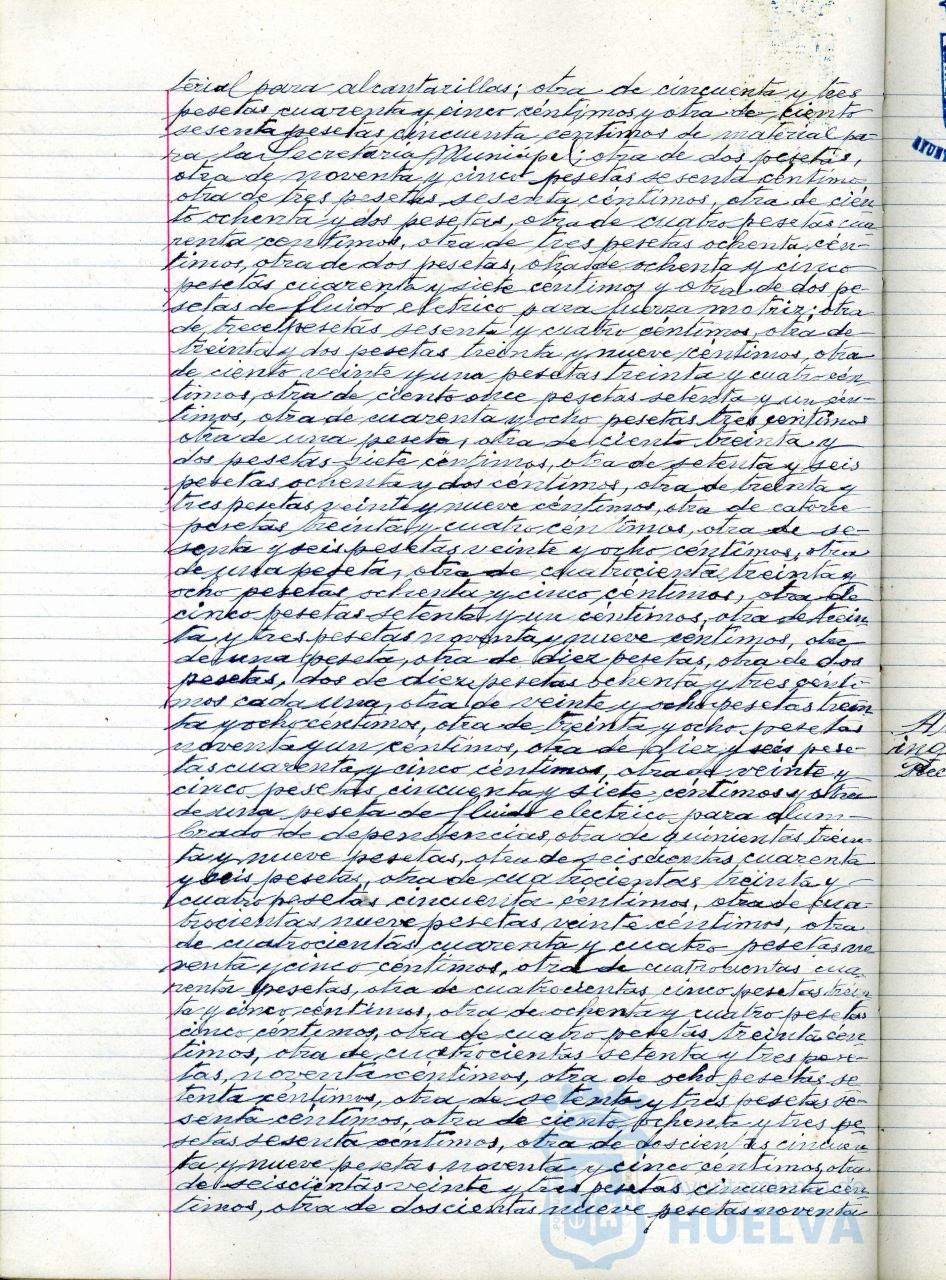 terial para alcantarillas; otra de cincuenta y tres
pesetas cuarenta y cinco céntimos y otra de ciento
sesenta pesetas cincuenta centimos de material pa-
ra la Secretaría Municipal; otra de dos pesetas,
otra de noventa y cinco pesetas sesenta céntimos,
otra de tres pesetas sesenta céntimos, otra de cien-
to ochenta y dos pesetas, otra de cuatro pesetas cua
renta centimos, otra de tres pesetas ochenta cén-
timos, otra de dos pesetas, otra de ochenta y cinco
pesetas cuarenta y siete centimos y otra de dos pe-
setas de fluido electrico para fuerza motriz; otra
de trece pesetas sesenta y cuatro céntimos, otra de
treinta y dos pesetas treinta y nueve céntimos, otra
de ciento veinte y una pesetas treinta y cuatro cén
timos, otra de ciento once pesetas setenta y un cén-
timos, otra de cuarenta y ocho pesetas tres centimos
otra de una peseta, otra de ciento treinta y
dos pesetas siete céntimos, otra de setenta y seis
pesetas ochenta y dos centimos, otra de treinta y
tres pesetas veinte y nueve céntimos, otra de catorce
pesetas treinta y cuatro céntimos, otra de se-
senta y seis pesetas veinte y ocho centimos, otra
de una peseta, otra de cuatrocientas treinta y
ocho pesetas ochenta y cinco céntimos, otra de
cinco pesetas setenta y un céntimos, otra de trein
ta y tres pesetas noventa y nueve centimos, otra
de una peseta, otra de diez pesetas, otra de dos
pesetas, dos de diez pesetas ochenta y tres cénti
mos cada una, otra de veinte y ocho pesetas trein
ta y ocho céntimos, otra de treinta y ocho pesetas
noventa y un centimos, otra de diez y seis pese-
tas cuarenta y cinco céntimos, otra de veinte y
cinco pesetas cincuenta y siete centimos y otra
de una peseta de fluido electrico para alum-
brado de dependencias, otra de quinientas trein-
ta y nueve pesetas, otra de seiscientas cuarenta
y seis pesetas, otra de cuatrocientas treinta y
cuatro pesetas cincuenta centimos, otra de cua-
trocientas nueve pesetas veinte céntimos, otra
de cuatrocientas cuarenta y cuatro pesetas no
venta y cinco céntimos, otra de cuatrocientas cua
renta pesetas, otra de cuatrocientas cinco pesetas trein
ta y cinco céntimos, otra de ochenta y cuatro pesetas
cinco céntimos, otra de cuatro pesetas treinta cén
timos, otra de cuatrocientas setenta y tres pese-
tas, noventa céntimos, otra de ocho pesetas se
tenta céntimos, otra de setenta y tres pesetas se-
senta centimos, otra de ciento ochenta y tres pe
setas sesenta centimos, otra de doscientas cincuen
ta y nueve pesetas noventa y cinco céntimos, otra
de seiscientas veinte y tres pesetas cincuenta cén
timos, otra de doscientas nueve pesetas noventa
Ayuntamiento de
HUELVA